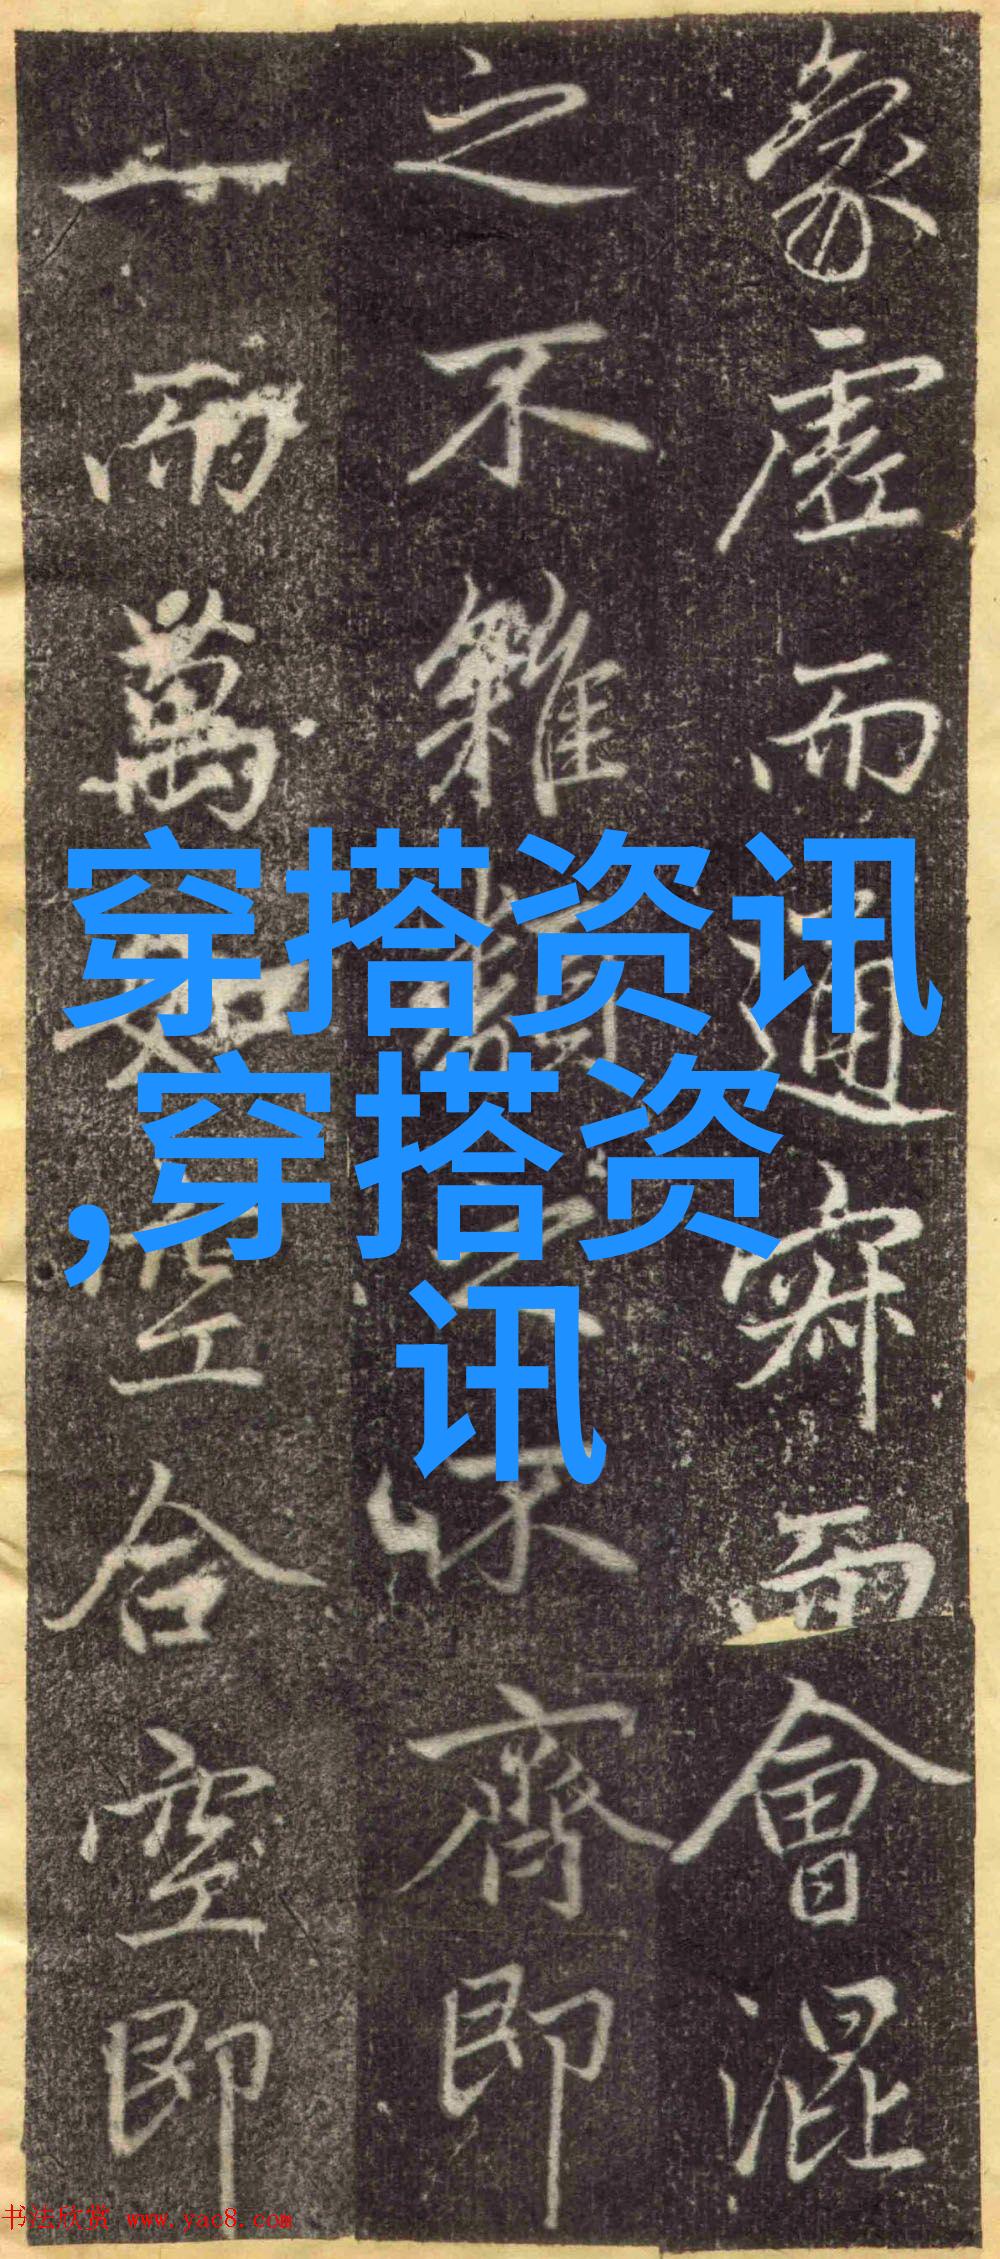 象虛而通寂而會混
之不雜之不齊即
一而萬如空合空即
穿搭资讯
,穿搭资
讯
书法欣赏 www.yac8.com